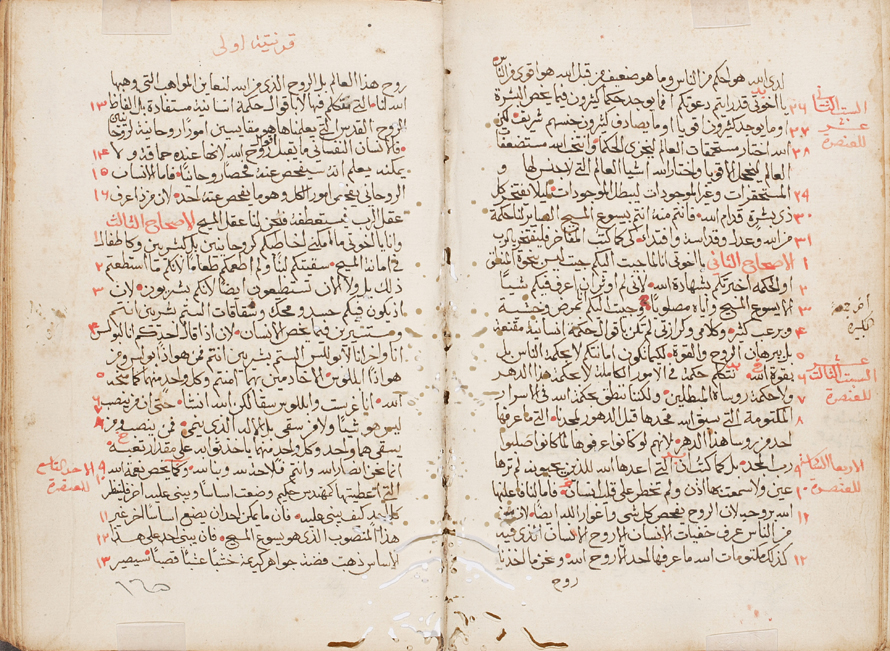 لدى الله هو احكم من الناس وما هو ضعيف من قبل الله هو اقوى من الناس
٢٦ يا اخوتي قد رايتم دعوتكم انما يوجد حكما كثيرون فيما يخص البشرة
٢٧ وما يوجد كثيرون اقويا وما يصادف كثيرون جنسهم شريف لكن
٢٨ الله اختار مستحمقات العالم ليخزي الحكما وانتخب الله مستضعفات
العالم ليخجل الاقويا واختار الله اشيا العالم التي لا جنس لها و
٢٩ المستحقرات وغير الموجودات ليبطل الموجودات ليلا يفتخر كل
٣٠ ذي بشرة قدام الله فانتم منه انتم بيسوع المسيح الصاير لنا حكمة
٣١ من الله وعدلا وقداسة وافتداء لكي كما كتب المفاخر فليفتخر بالرب
١ الاصحاح الثاني يا اخوتي انا لما جيت اليكم جيت ليس بتفوق المنطق
٢ او الحكمة اخبرتكم بشهادة الله لانني لم اوثر ان اعرف فيكم شيئا
٣ الا يسوع المسيح واياه مصلوبا وجيت اليكم بمرض وخشية
٤ وبرعب كثير وكلامي وكرازتي لم تكن باقوال حكمة انسانية مقنعة
٥ بل ببرهان الروح والقوة لكيما تكون امانتكم لا بحكمة الناس بل
٦ بقوة الله نتكلم حكمة في الامور الكاملة لا بحكمة هذا الدهر
٧ ولا حكمة روساه المبطلين ولكننا ننطق بحكمة الله في الاسرار
٨ المكتومة التي سبق الله فحددها قبل الدهور لمجدنا التي ما عرفها
احد من روسا هذا الدهر لانهم لو كانوا عرفوها لما كانوا صلبوا
٩ رب المجد بل كما كتب ان التي اعدها الله للذين يحبونه لم ترها
١٠ عين ولا سمعت بها اذن ولم تخطر على قلب انسان فاما لنا فاعلنها
الله بروحه لان الروح يفحص كل شي واغوار الله ايضا لان من
من الناس عرف خفيات الانسان الا روح الانسان الذي فيه
١٢ كذلك مكتومات الله ما عرفها احد الا روح الله ونحن ما اخذنا
روح
السبت الثاني
عشر
للعنصرة
السبت الثالث
عشر
للعنصرة
الاربعا الثانية
للعنصرة
قرنتية اولى
روح هذا العالم بل الروح الذي من الله لنعاين المواهب التي وهبها
١٣ الله لنا ما التي نتكلم فيها لا باقوال حكمة انسانية مستفادة بل الفاظ
الروح القدس التي يعلمناها مقايسين امورا روحانية لروحانيين
١٤ فالانسان النفساني ما يقبل اقوال روح الله لانها عنده حماقة ولا
١٥ يمكنه يعلم انه سيفحص عنه فحصا روحانيا فاما الانسان
١٦ الروحاني يفحص امور الكل وهو ما يفحص عنه احد لان من ذا عرف
عقل الرب فيستعقله فنحن لنا عقل المسيح الاصحاح الثالث
١ وانا يا اخوتي ما امكنني اخاطبكم كروحانيين بل كبشريين وكاطفال
٢ في امانة المسيح سقيتكم لبنا ولم اطعمكم طعاما لانكم ما استطعتم
٣ ذلك بل ولا الان تستطيعون ايضا لانكم بشريون لان
اذ يكون فيكم حسد ومحك وشقاقات الستم بشريين انتم
٤ ومستسيرين فيما يخص الانسان لان اذا قال احدكم انا لبولس
انا واخر انا لابولس الستم بشريين انتم فمن هو اذا بولس ومن
٥ هو اذا ابللوس الا خادمين بهما امنتم وكل واحد منهما كما منحه
٦ الله انا غرست وابللوس سقا لكن الله انشا حتى ان من ينصب
٧ ليس هو شيئا ولا من سقى بل الله الذي ينمي فمن ينصب ومن
٨ يسقي هما واحد وكل واحد منهما ياخذ ثوابه على مقدار تعبه
٩ انما نحن انصار الله وانتم فلاحة الله وبناء الله وكما يخص نعمة الله
التي اعطيتها كمهندس حكيم وضعت اساسا ويبني عليه اخر فلينظر
١١ كل احد كيف يبني عليه فان ما يمكن احد ان يضع اساسا اخر غير
١٢ هذا المنصوب الذي هو يسوع المسيح فان يبني احد على هذا
١٣ الاساس ذهب فضة جواهر كريمة خشبا عشبا قصبا سيصير
الاحد التاسع
للعنصرة